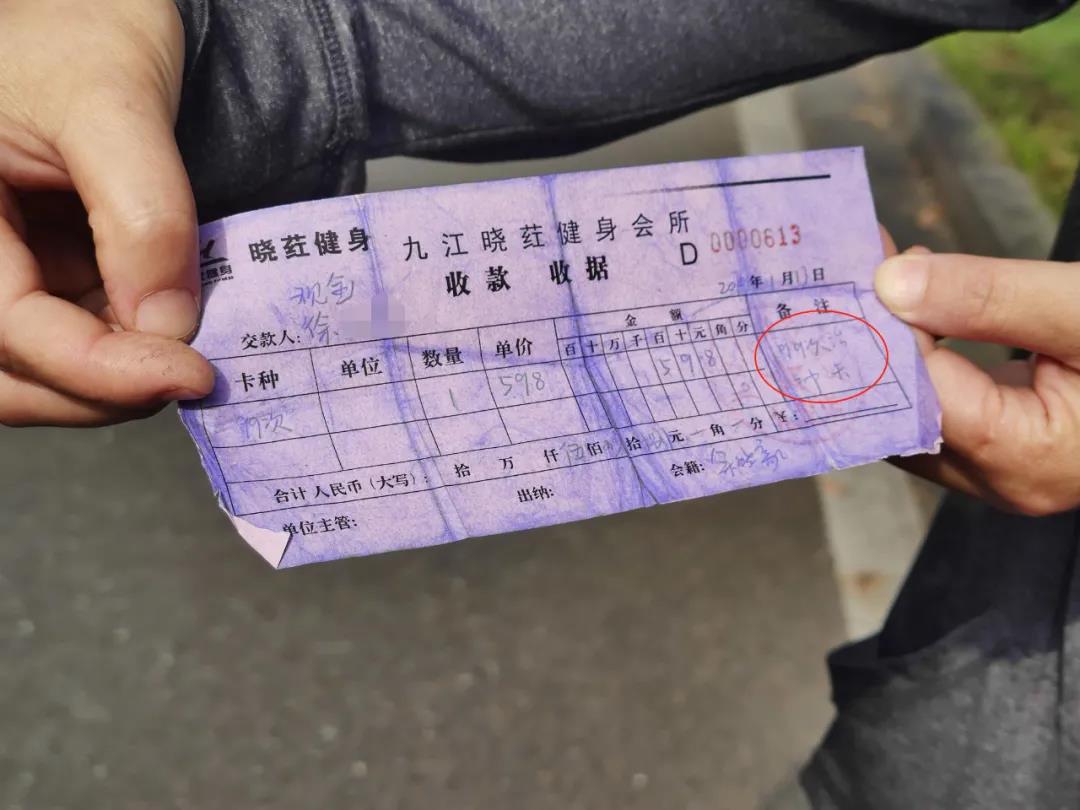 晓荭健身 九江晓荭健身会所
收款 收据 D 0000613
现金
年1月13日
交款人: 徐
卡种 单位 数量 单价 金额 备注
百 十 万 千 百 十 元 角 分
99次 1 598 5 9 8
合计人民币(大写): 拾 万 仟 伍佰 拾 元 角 分 ¥:
单位主管: 出纳: 会籍: